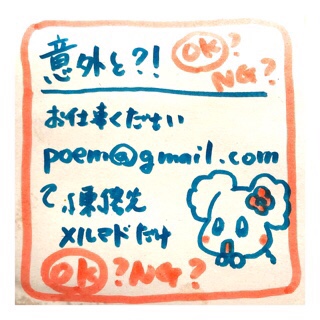 意外と?! OK? NG?
お仕事ください
poem@gmail.com
で、連絡先
メルアドだけ
OK?NG?